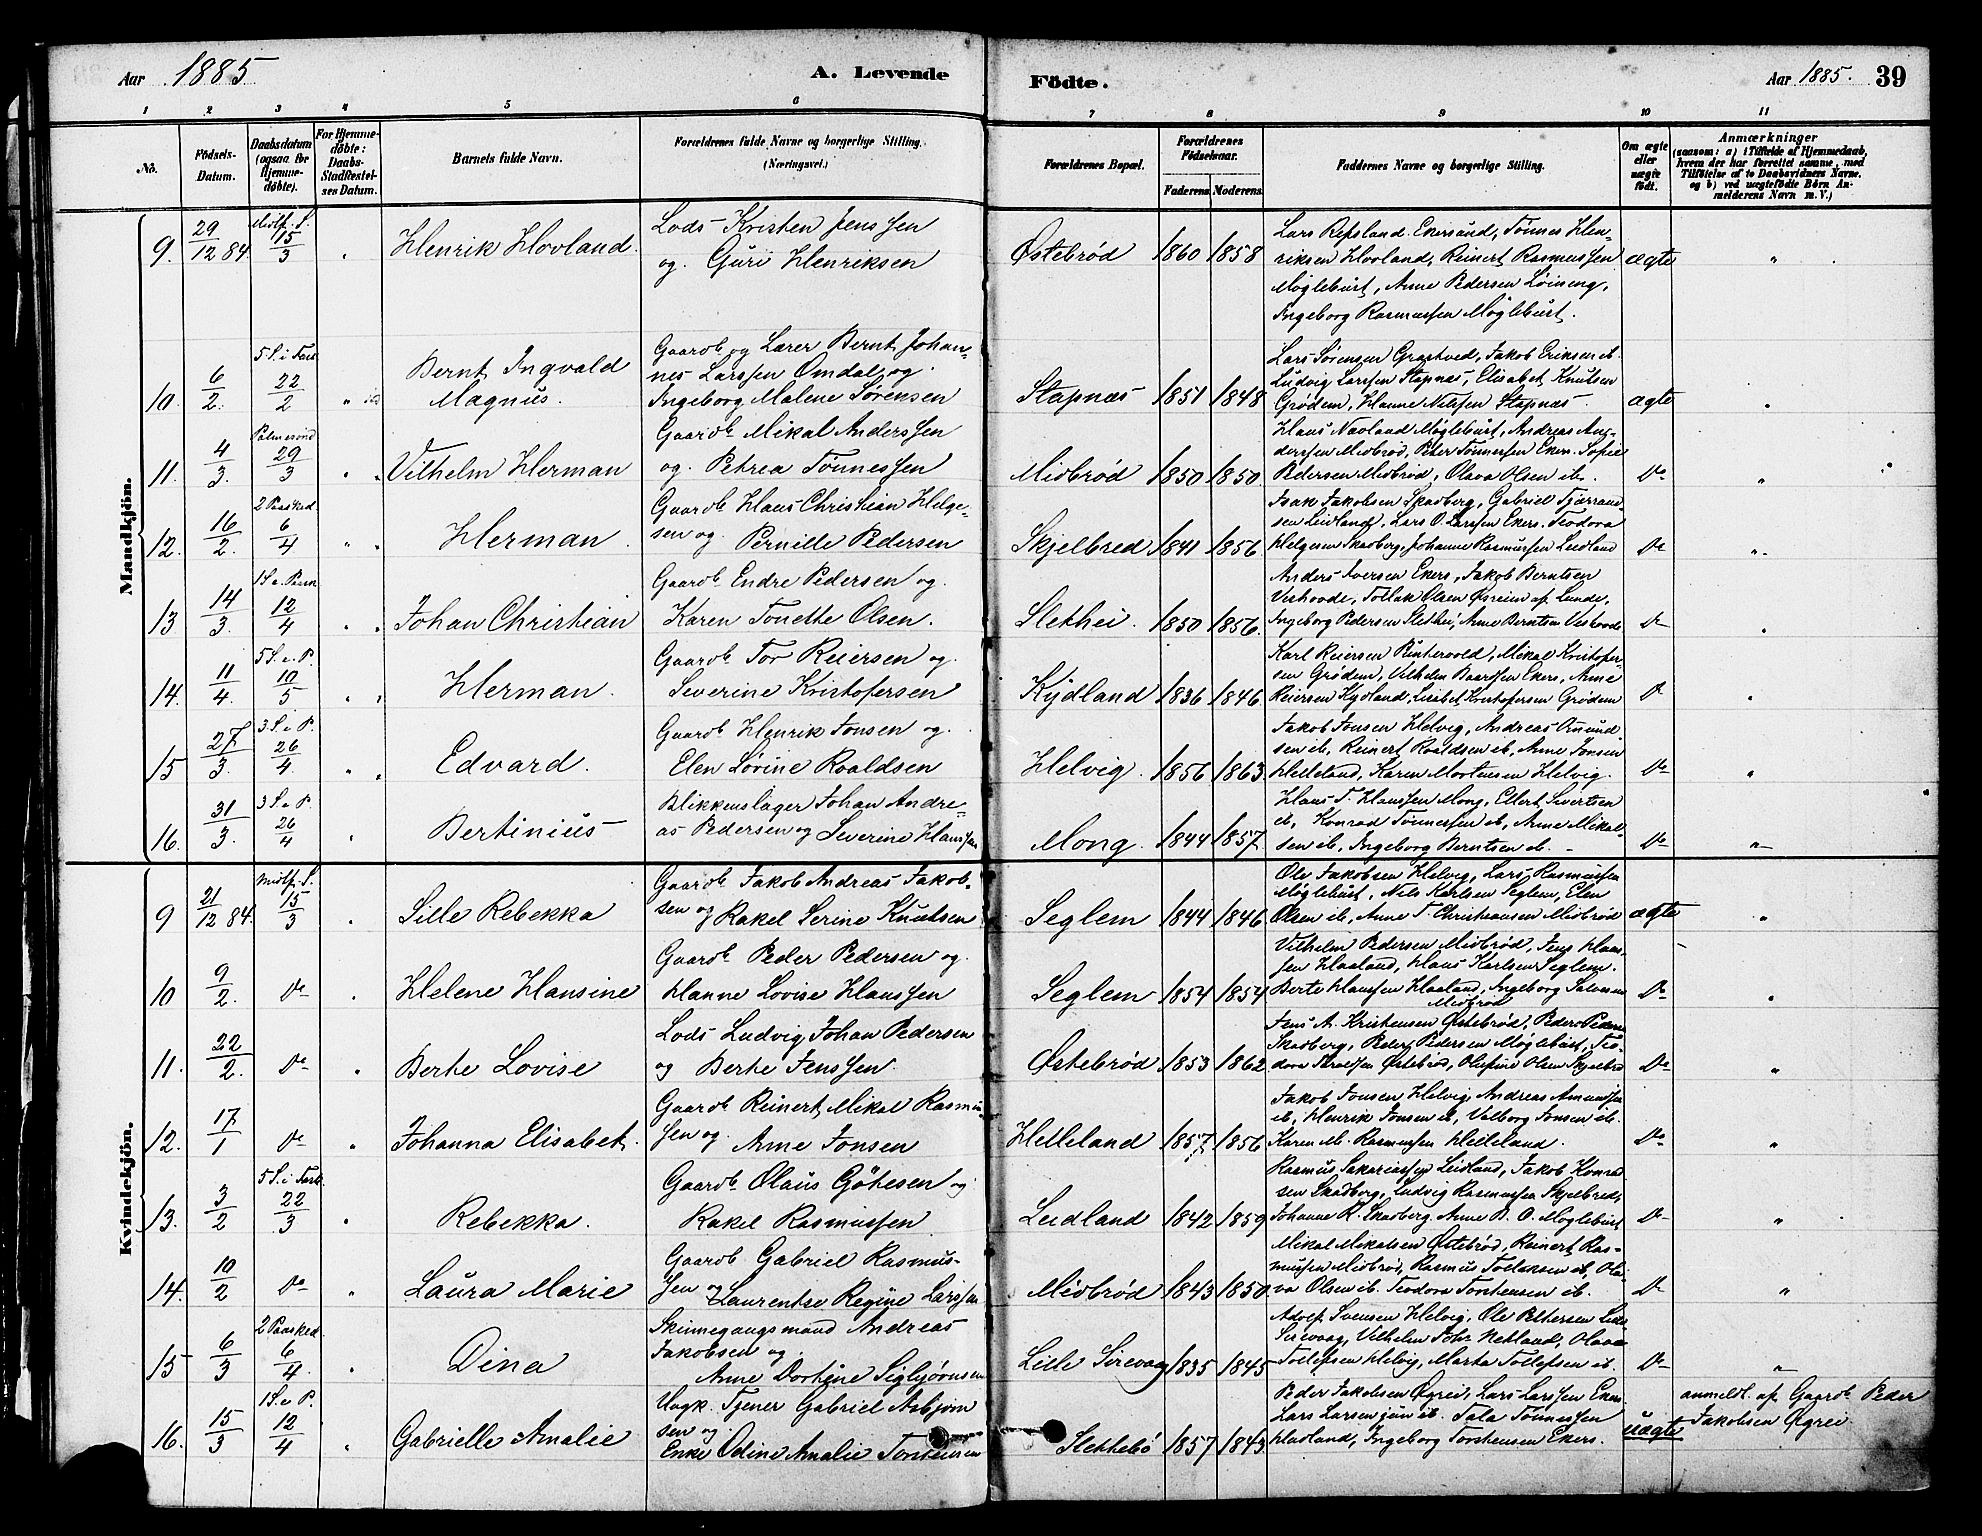 Aar 1885
A. Levende
Födte.
Aar 1885.
39
1 2 3 4 5 6 7 8 9 10 11
No.
Födsels-Datum.
Daabsdatum (ogsaa for Hjemmedöbte).
For Hjemmedöbte: Daabs-Stadfæstelses Datum.
Barnets fulde Navn.
Forældrenes fulde Navne og borgerlige Stilling. (Næringsvei.)
Forældrenes Bopæl.
Forældrenes Födselsaar.
Faderens. Moderens.
Faddernes Navne og borgerlige Stilling.
Om ægte eller uægte födt.
Anmærkninger
(saasom: a) i Tilfælde af Hjemmedaab, hvem der har forrettet samme, med Tilföielse af to Daabsvidners Navne. og b) ved uægtefödte Börn Anmelderens Navn m. V.)
Mandkjön.
9. 29/12 84. Midf. S. 15/3 " Henrik Hovland.
Lods Kristen Jenssen
og Guri Henriksen
Østebrød 1860 1858
Lars Repsland Ekersund, Tønnes Hen-
riksen Hovland, Reinert Rasmussen
Møglebust, Anne Pedersen Løining,
Ingeborg Rasmussen Møglebust.
ægte "
10. 6/2. 5 S. i Fast. 22/2 " Bernt Ingvald
Magnus.
Gaardb og Lærer Bernt Johan-
nes Larssen Omdal og
Ingeborg Malene Sørensen
Stapnæs 1851 1848
Lars Sørensen Grastved, Jakob Eriksen ib.
Ludvig Larssen Stapnæs, Elisabet Knutsen
Grødem, Hanne Nilssen Stapnæs.
ægte "
11. 4/3. Palmesønd 29/3 " Vilhelm Herman
Gaardb Mikal Anderssen
og Petrea Tønnessen
Midbrød 1850 1850.
Hans Navland Møglebust, Andreas An-
derssen Midbrød, Peter Tønnessen Ekers. Sofie
Pedersen Midbrød, Olava Olsen ib.
Do "
12. 16/2. 2 Paasked 6/4 " Herman
Gaardb Hans Christian Helge-
sen og Pernille Pedersen
Skjelbred 1841 1856
Isak Jakobsen Skadberg, Gabriel Tjærand-
sen Leidland, Lars O. Larssen Ekers. Teodora
Helgesen Skadberg, Johanne Rasmussen Leidland
Do "
13 14/3. 1 S. e. Paas. 12/4 " Johan Christian
Gaardb Endre Pedersen og
Karen Tonette Olsen.
Slethei. 1850 1856.
Anders Iversen Ekers., Jakob Berntsen
Veshovde, Tollak Olsen Øgreien af Lunde,
Ingeborg Pedersen Slethei, Anne Berntsen Veshovde
Do "
14. 11/4. 5 S. e. P. 10/5 " Herman.
Gaardb Tor Reiersen og
Severine Kristofersen
Kydland 1836 1846.
Karl Reiersen Rintervold, Mikal Kristofer-
sen Grødem, Vilhelm Baardsen Ekers, Anne
Reiersen Kydland, Lisabet Kristofersen Grødem
Do "
15 27/3. 3 S. e. P. 26/4. " Edvard.
Gaardb Henrik Jonsen og
Elen Sørine Roaldsen
Helvig. 1856 1863.
Jakob Jonsen Helvig, Andreas Omund-
sen ib, Reinert Roaldsen ib, Anne Jonsen
Helleland, Karen Mortensen Helvig.
Do "
16. 31/3. 3 S. e P. 26/4 " Bertinius
Blikkenslager Johan Andre-
as Pedersen og Severine Hanssen
Mong. 1844 1857.
Hans T. Hanssen Mong, Ellert Sivertsen
ib, Konrad Tønnessen ib, Anne Mikal-
sen ib, Ingeborg Berntsen ib.
Do "
Kvindekjön.
9 21/12 84. Midf. S. 15/3 " Sille Rebekka
Gaardb Jakob Andreas Jakob-
sen og Rakel Serine Knutsen
Seglem 1844 1846.
Ole Jakobsen Helvig, Lars Rasmussen
Møglebust, Nils Karlsen Seglem, Elen
Olsen ib, Anne T. Christiansen Midbrød
ægte "
10 9/2. Do " Helene Hansine
Gaardb Peder Pedersen og
Hanne Lovise Hanssen
Seglem 1854 1854
Vilhelm Pedersen Midbrød, Jens Hans-
sen Haaland, Hans Karlsen Seglem.
Berte Hanssen Haaland, Ingeborg Salvesen
Midbrød
Do "
11. 22/2. Do " Berte Lovise
Lods Ludvig Johan Pedersen
og Berte Jenssen.
Østebrød 1853 1862
Jens A. Kristensen Østebrød, Peder Peders
Skadberg, Peder Pedersen Møglebust, Teo-
dora Østebrød, Olufine Olsen Skjelbred
Do "
12. 17/1 Do " Johanna Elisabet.
Gaardb Reinert Mikal Rasmu-
sen og Anne Jonsen
Helleland 1857 1856
Jakob Jonsen Helvig Andreas Amundsen
ib, Henrik Jonsen ib, Valborg Jonsen ib.
Karen M. Rasmussen Helleland.
Do "
13. 3/2 5 S. i Fast. 22/3 " Rebekka.
Gaardb Olaus Gøtesen og
Rakel Rasmussen
Leidland 1842 1859
Rasmus Sakariassen Leidland, Jakob Konrad
sen Skadberg, Ludvig Rasmussen Skjelbred,
Johanne K. Skadberg, Anne B. O. Møglebust
Do "
14. 10/2 Do " Laura Marie
Gaardb Gabriel Rasmus-
sen og Laurentse Regine Larssen
Midbrød 1843 1850.
Mikal Mikalsen Østebrød, Reinert Ras-
mussen Midbrød, Rasmus Tollaksen ib, Ola-
va Olsen ib. Teodora Torstensen ib.
Do "
15 6/3 2 Paasked 6/4. " Dina
Skinnegangsmand Andreas
Jakobsen og
Anne Dortine Sigbjørnsen
Lille Sirevaag 1835 1845
Adolf Svensen Helvig, Ole Pettersen Lille
Sirevaag, Vilhelm Joh. Netland, Olava
Tollefsen Helvig, Marta Tollefsen ib.
Do "
16. 15/3 1 S. e P. 12/4 " Gabrielle Amalie
Ungk. Tjener Gabriel Asbjørn
sen og
Enke Odine Amalie Torstensen
Slettebø 1857 1843.
Peder Jakobsen Øgrei, Lars Larssen Ekers
Lars Larsen jun ib. Tala Tønnessen
Hadland, Ingeborg Torstensen Ekers.
uægte
anmeldt af Gaardb Peder
Jakobsen Øgrei